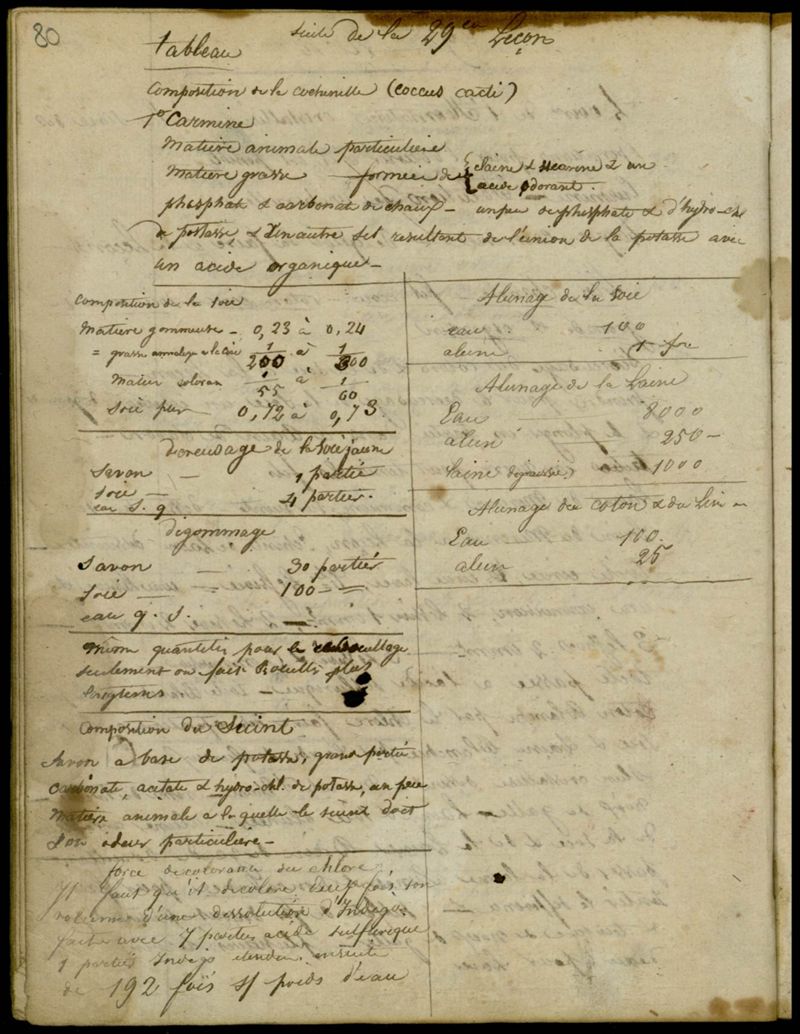 80
suite de la 29em Leçon
tableau
Composition de la cochenille (coccus cacti)
1o Carmine
Matiere animale particuliere
Matiere grasse formée de Elaine & stearine & un
acide odorant.
phosphat & carbonat de chaux - un peu de phosphate & d'hydro-chl
de potasse & d'un autre sel resultant de l'union de la potasse avec
un acide organique -
Composition de la soie
Matiere gommeuse - 0,23 à 0,24
= grasse analogue a la Cire 1/200 à 1/300
Matier coloran 1/55 à 1/60
Soie pur 0,72 à 0,73.
Decreusage de la soie jaune
Savon - 1 partie
Soie - 4 parties.
eau S. q
Degommage
Savon - 30 parties
Soie - 100 - =
eau q. s. -
Meme quantités pour le
seulement on fait bouillir plus
longtems -
Composition du Suint
Savon a base de potasse, grand partie
Carbonate, acetate & hydro-chl. de potasse, un peu
Matiere animale a la quelle le suint doit
son odeur particuliere -
force decolorante du chlore
Il faut qu'il decolore deux fois son
volume d'une dissolution d'Indigo
faite avec 7 parties acide sulfurique
1 parties Indigo etendu ensuite
de 192 fois s/ poids d'eau
Alunage de la Soie
eau 100
alun 1
Alunage de la Laine
Eau 8000
alun 250 -
laine degraissée) 1000
Alunage du coton & du lin -
Eau 100.
alun 25